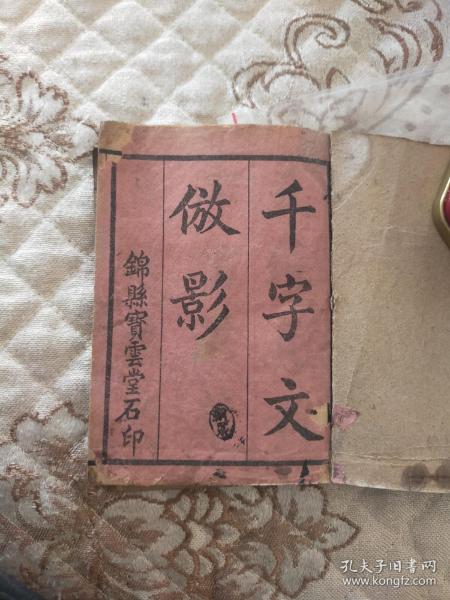 千字文
倣影
錦縣寳雲堂石印
孔夫子旧书网
www.kongfz.com